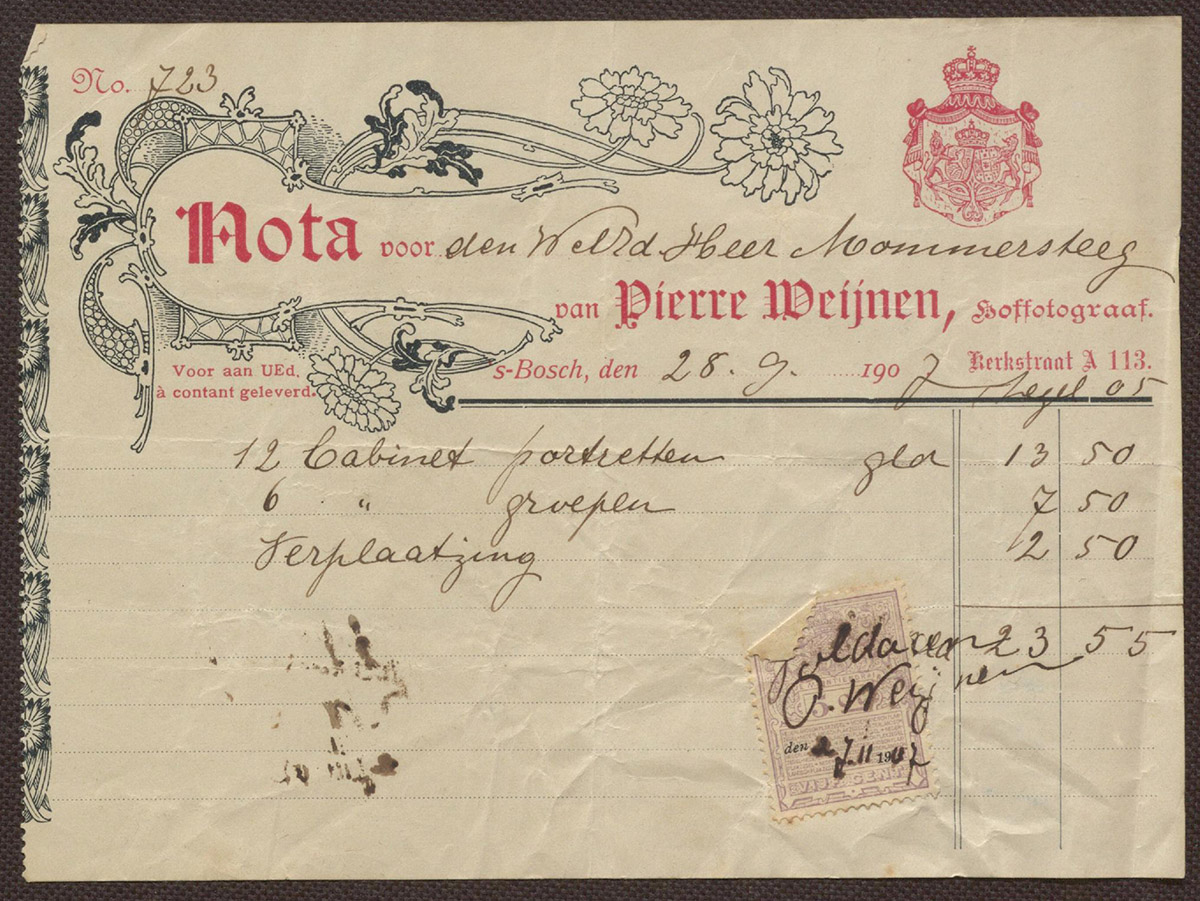 No. 723
Nota voor den WelEd Heer Mommersteeg
van Pierre Weijnen, Hoffotograaf.
Voor aan UEd,
à contant geleverd.
s-Bosch, den 28. 9. 1907 Kerkstraat A 113.
zegel 05
12 Cabinet portretten gld 13 50
6 " groepen 7 50
Verplaatzing 2 50
Voldaan 23 55
P. Weijnen
den 27.11 1907
VIJF CENT